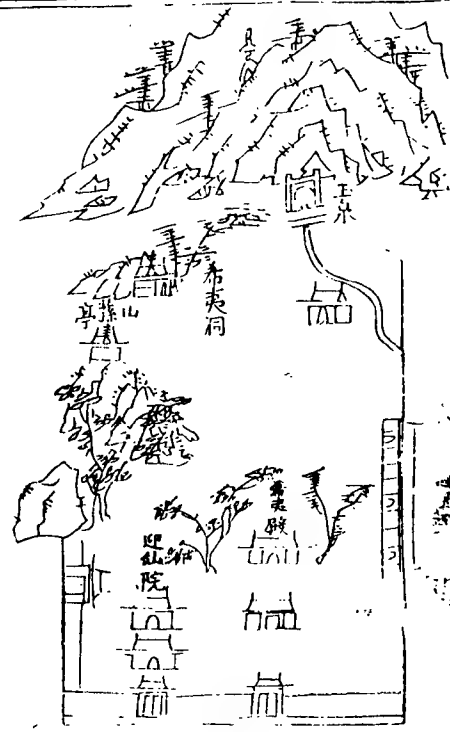 玉泉
希夷洞
山蓀亭
希夷殿
迎仙院